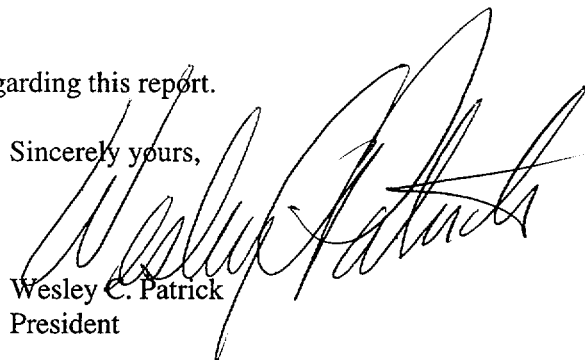 garding this report.
Sincerely yours,
Wesley C. Patrick
Wesley C. Patrick
President